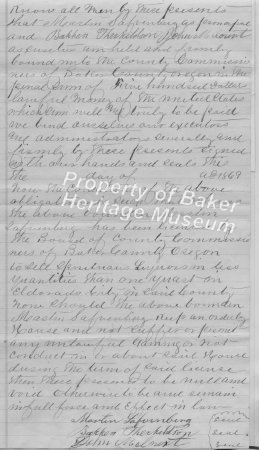 Know all Men by these presents
that Martin Safrenburg as principal
and
as sureties are held and firmly
bound unto the County Commissio
ners of Baker County Oregon in the
penal Sum of Five hundred Dollars
lawful Money of the United States
which Sum will be truly to be paid
we bind ourselves our executors
and administrators severally and
firmly by these presents Signed
with our hands and Seals this
the day of AD 1869
Now the Condition of the above
obligation is such that
the above
Safrenburg has been licensed
The Board of County Commissio
ners of Baker County Oregon
to sell Spirituous Liquors in less
Quantities than one Quart in
Eldorado City in Said County
Now Should the above bounden
Martin Safrenburg Keep an orderly
House and not Suffer or permit
any unlawful Gaming or riot
Conduct in or about said House
during the term of said license
then these presents to be null and
void Otherwise to be and remain
in full force and effect in law
Martin Safrenburg Seal
Seal
John Seal
Property of Baker
Heritage Museum